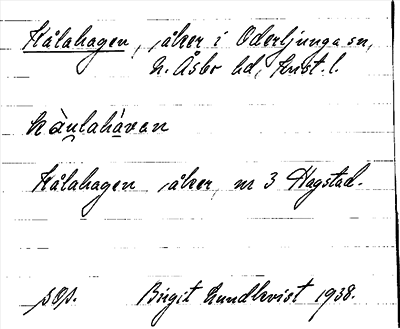 Kålahagen, åker i Oderljunga sn,
N. Åsbo hd, Krist. l.
kàu̯lahávan
Kålahagen åker, nr 3 Hagstad.
sep. Birgit Lundkvist 1938.